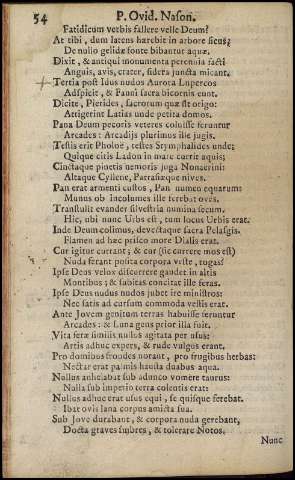 54 P. Ovid. Nason.
Fatidicum verbis fallere velle Deum?
At tibi, dum latens hærebit in arbore ficus;
De nullo gelidæ fonte bibantur aquæ.
Dixit, & antiqui monumenta perennia facti
Anguis, avis, crater, sidera juncta micant.
Tertia post Idus nudos Aurora Lupercos
Adspicit, & Fauni sacra bicornis eunt.
Dicite, Pierides, sacrorum quæ sit origo:
Attigerint Latias unde petita domos.
Pana Deum pecoris veteres coluisse feruntur
Arcades: Arcadijs plurimus ille jugis.
Testis erit Pholoë, testes Stymphalides undæ;
Quique citis Ladon in mare currit aquis;
Cinctaque pinetis nemoris juga Nonacrini:
Altaque Cyllene, Parrasiæque nives.
Pan erat armenti custos, Pan numen equarum:
Munus ob incolumes ille ferebat oves.
Transtulit evander silvestria numina secum.
Hic, ubi nunc Urbs est, tum locus Urbis erat.
Inde Deum colimus, devectaque sacra Pelasgis.
Flamen ad hæc prisco more Dialis erat.
Cur igitur currant; & cur (sic currere mos est)
Nuda ferant posita corpora veste, rogas?
Ipse Deus velox discurrere gaudet in altis
Montibus; & subitas concitat ille feras.
Ipse Deus nudus nudos jubet ire ministros:
Nec satis ad cursum commoda vestis erat.
Ante Jovem genitum terras habuisse feruntur
Arcades: & Luna gens prior illa fuit.
Vita feræ similis nullos agitata per usus:
Artis adhuc expers, & rude vulgus erant.
Pro domibus frondes norant, pro frugibus herbas:
Nectar erat palmis hausta duabus aqua.
Nullus anhelabat sub adunco vomere taurus:
Nulla sub imperio terra colentis erat:
Nullus adhuc erat usus equi, se quisque ferebat.
Ibat ovis lana corpus amicta sua.
Sub Jove durabant, & corpora nuda gerebant,
Docta graves imbres, & tolerare Notos.
Nunc